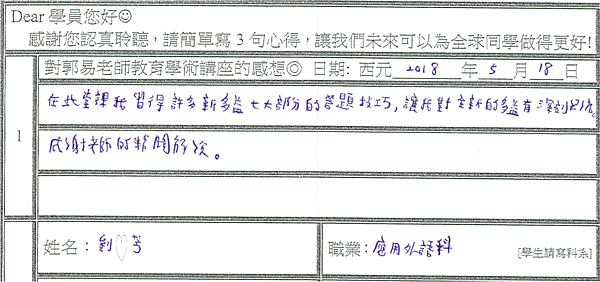 Dear 學員您好☺
感謝您認真聆聽，請簡單寫 3 句心得，讓我們未來可以為全球同學做得更好!
對郭易老師教育學術講座的感想◎ 日期: 西元 2018 年 5 月 18 日
1
在此堂課我習得許多新多益七大部分的答題技巧，讓我對全新的多益有深刻印象。
感謝老師的精闢解說。
姓名：劉♡芳
職業: 應用外語科
[學生請寫科系]